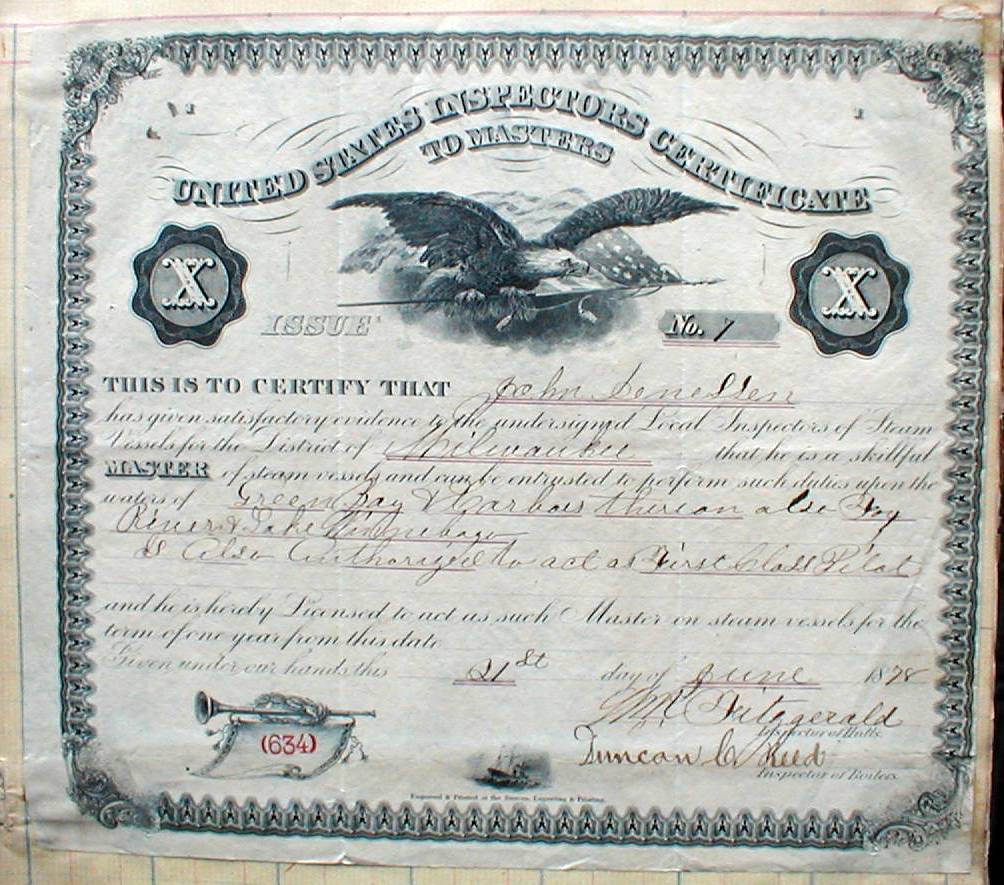 UNITED STATES INSPECTORS CERTIFICATE
TO MASTERS
X
X
ISSUE
No. 7
THIS IS TO CERTIFY THAT John
has given satisfactory evidence to the undersigned Local Inspectors of Steam
Vessels for the District of Milwaukee that he is a skillful
MASTER of steam vessels and can be entrusted to perform such duties upon the
waters of Green Bay & Harbors thereon also Fox
River & Lake Winnebago
& Also Authorized to act as First Class Pilot
and he is hereby Licensed to act as such Master on steam vessels for the
term of one year from this date
Given under our hands this 21st day of June 1878
Fitzgerald
Inspector of Hulls.
(634)
Duncan C Reed
Inspector of Boilers.
Engraved & Printed at the Bureau, Engraving & Printing.